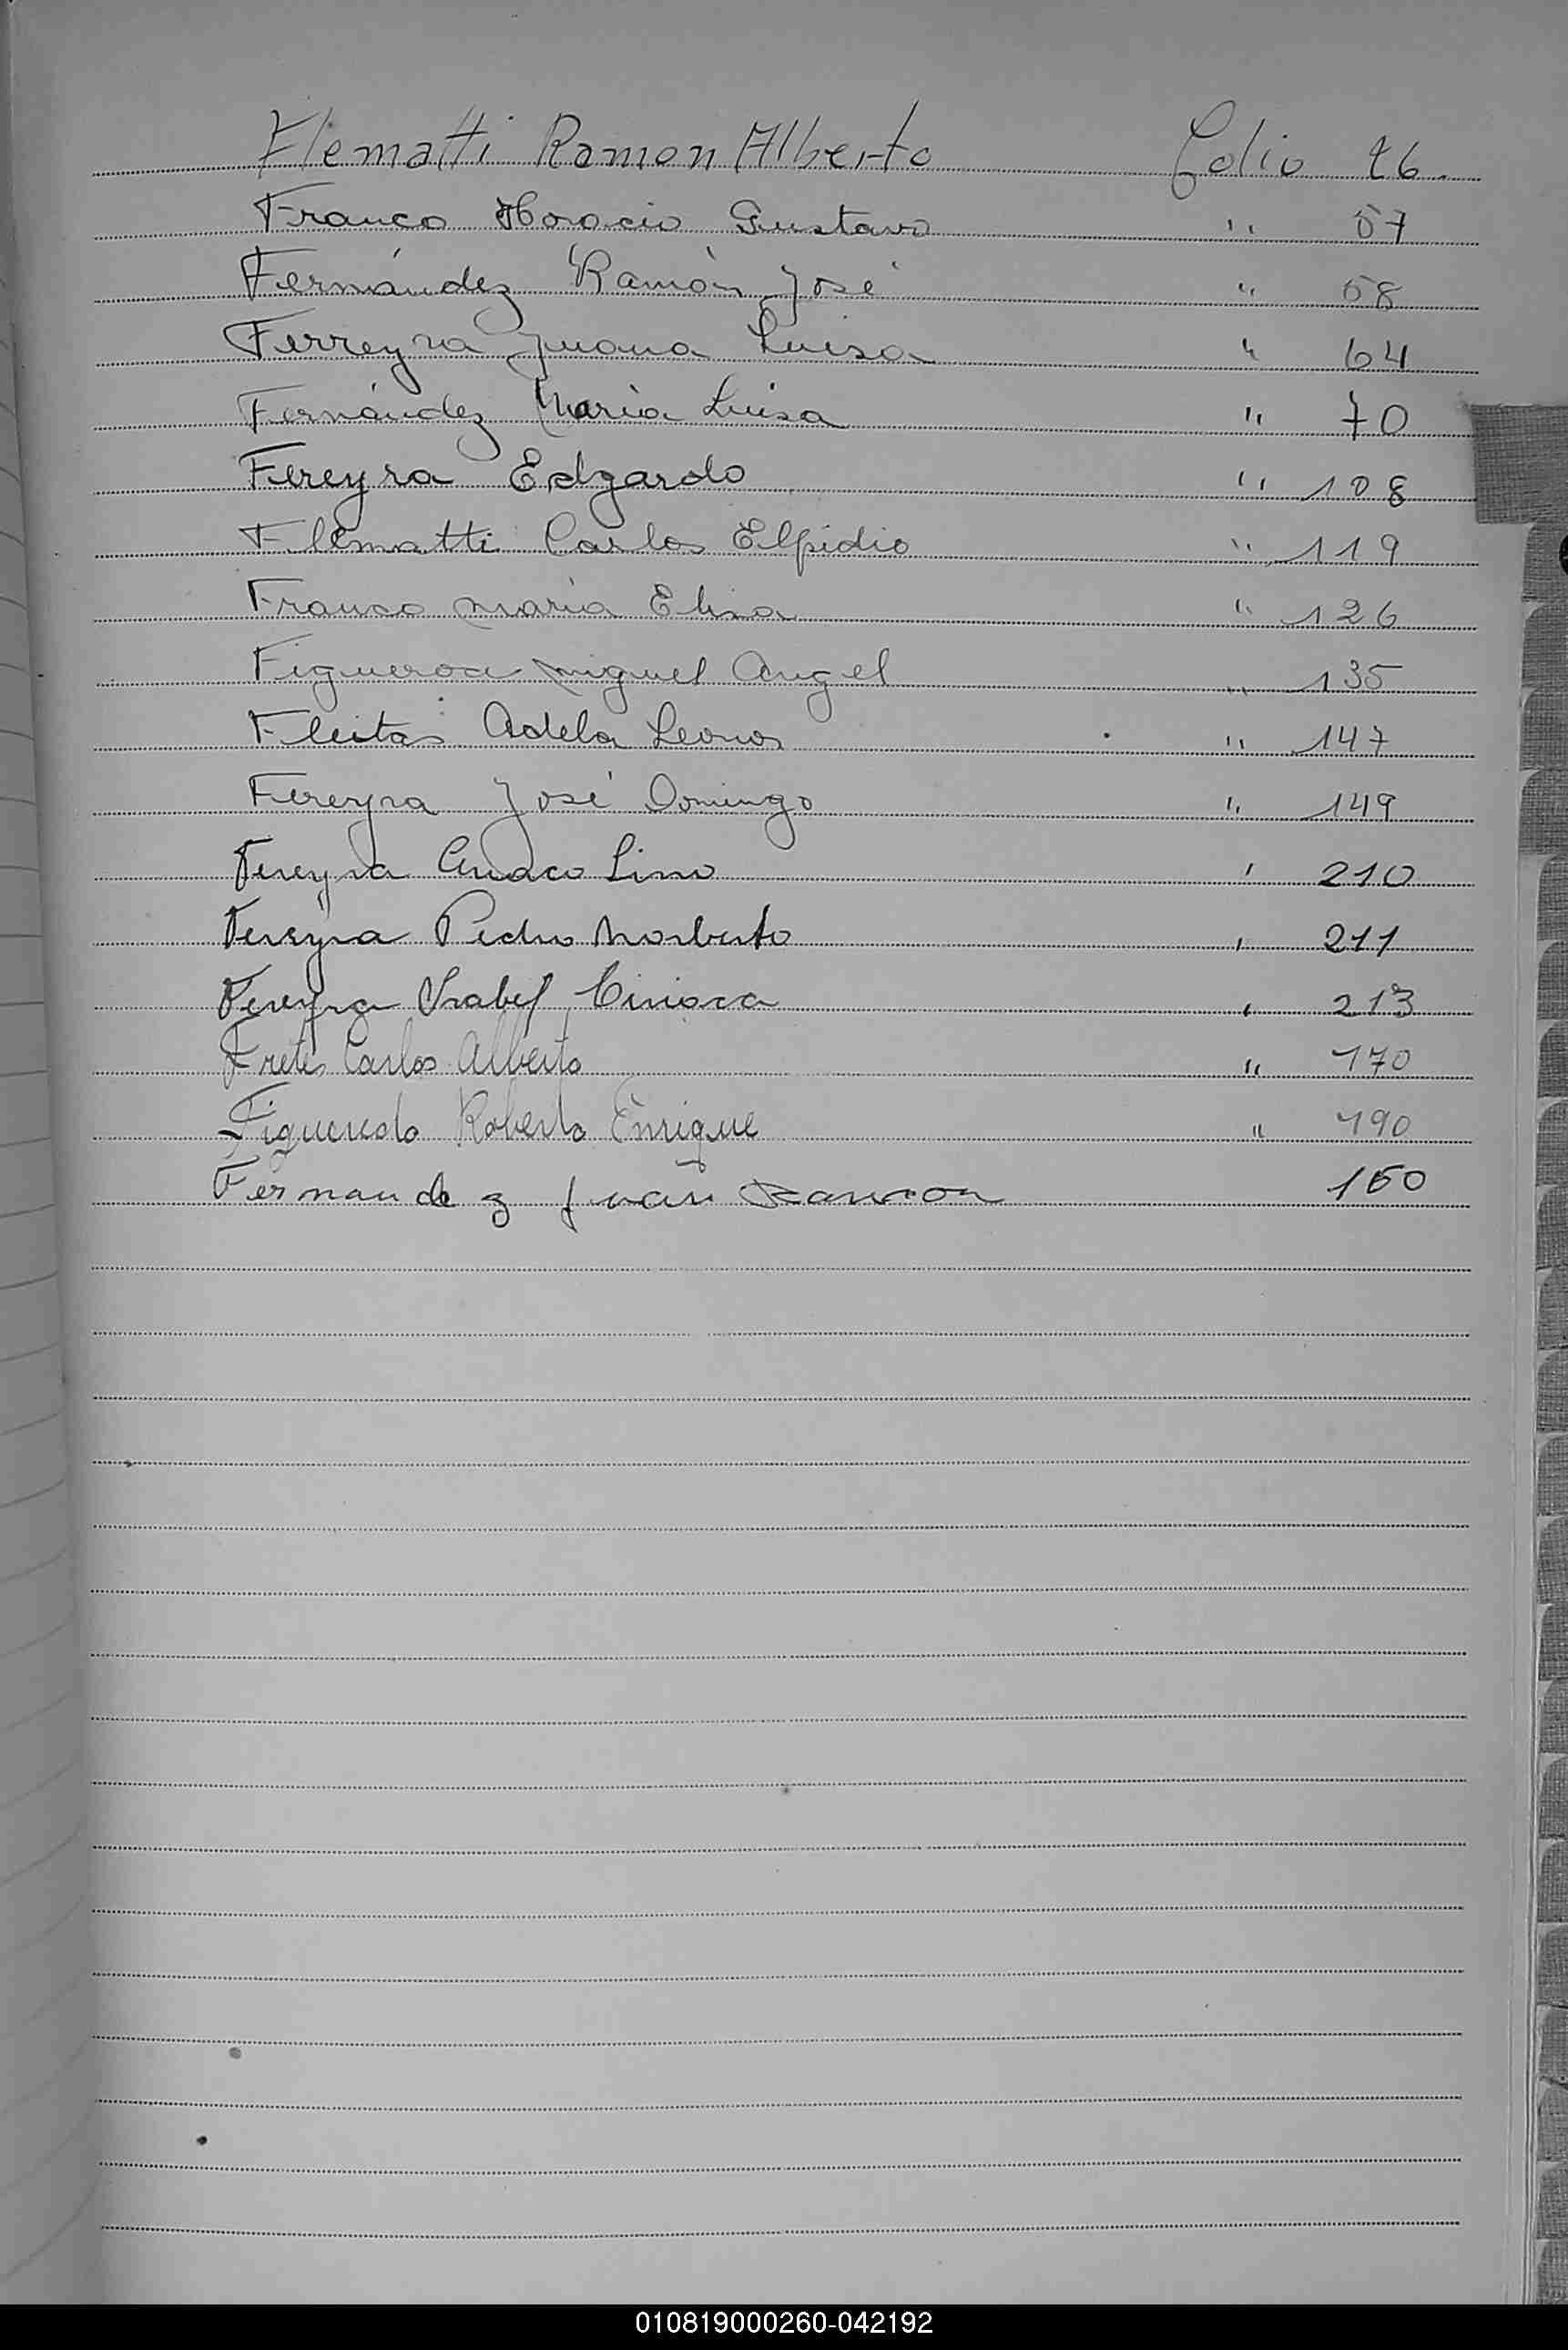 Flematti Ramon Alberto Folio 26.
Franco Horacio Gustavo " 57
Fernández Ramón José " 58
Ferreyra Juana Luisa " 64
Fernández María Luisa " 70
Fereyra Edgardo " 108
Flematti Carlos Elpidio " 119
Franco María Elisa " 126
Figueroa Miguel Angel " 135
Fleitas Adela Leonor " 147
Fereyra José Domingo " 149
Fereyra Lino ' 210
Fereyra Pedro Norberto ' 211
Fereyra Isabel ' 213
Fretes Carlos Alberto " 170
Figueredo Roberto Enrique " 190
Fernandez Juan Ramon 150
010819000260-042192